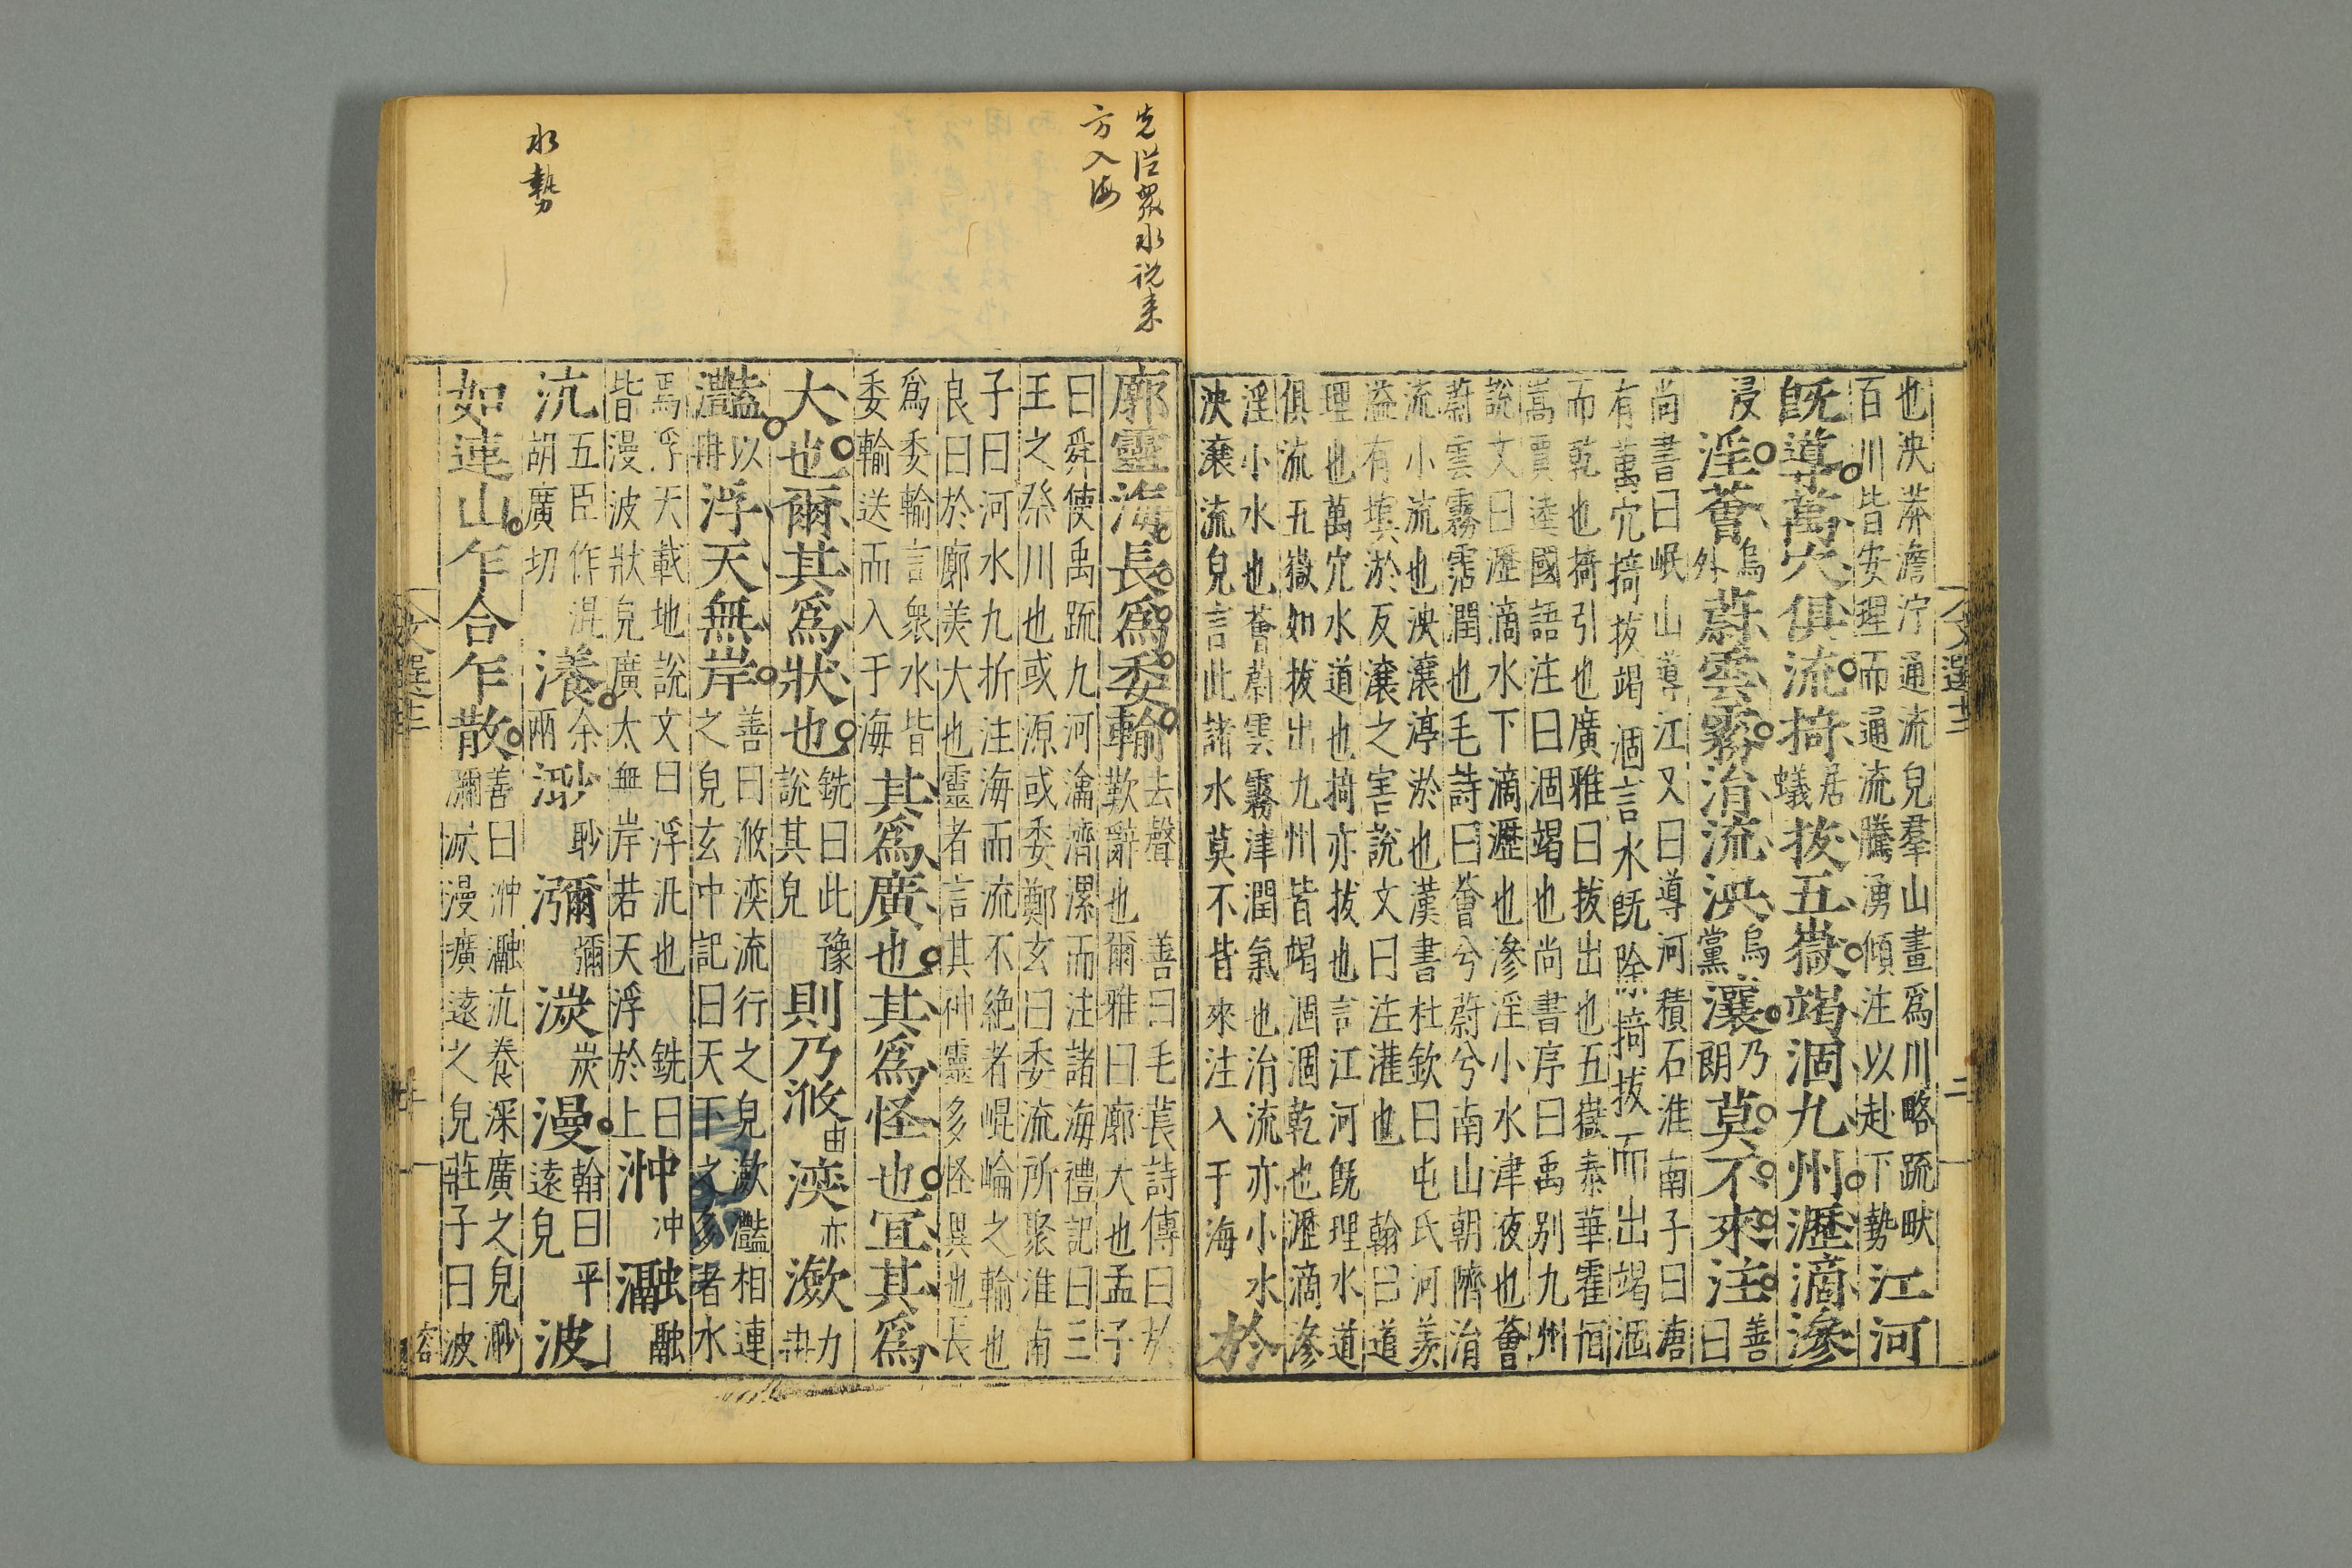 也泱漭澹泞通流皃羣山畫爲川略䟽畎
百川皆安理而通流騰湧傾注以赴下勢
江河
旣導萬穴俱流掎居蟻拔五嶽竭涸九州瀝滴滲
浸淫薈烏外蔚雲霧涓流泱烏黨瀼乃朗莫不來注善曰
尚書曰岷山導江又曰導河積石淮南子曰唐
有萬穴掎拔竭涸言水旣除掎拔而出竭涸
而乾也掎引也廣雅曰拔出也五嶽泰華霍恒
嵩賈逵國語注曰涸竭也尚書序曰禹別九州
說文曰瀝滴水下滴瀝也滲淫小水津液也薈
蔚雲霧霑潤也毛詩曰薈兮蔚兮南山朝隮涓
流小流也泱瀼渟淤也漢書杜欽曰屯氏河羨
溢有填淤反瀼之害說文曰注灌也翰曰道
理也萬穴水道也掎亦拔也言江河旣理水道
俱流五嶽如拔出九州皆竭涸涸乾也瀝滴滲
淫小水也薈蔚雲霧津潤氣也涓流亦小水
泱瀼流皃言此諸水莫不皆來注入于海
於
先從衆水說来
方入海
廓靈海長爲委輸去聲
善曰毛萇詩傳曰於
歎辭也爾雅曰廓大也孟子
曰舜使禹䟽九河瀹濟漯而注諸海禮記曰三
王之祭川也或源或委鄭玄曰委流所聚淮南
子曰河水九折注海而流不絶者崐崘之輸也
良曰於廓美大也靈者言其神靈多怪異也長
爲委輸言衆水皆
委輸送而入于海
其爲廣也其爲怪也宜其爲
大也爾其爲狀也銑曰此豫說其皃則乃浟由湙亦瀲力冉
灩以冉浮天無岸
善曰浟湙流行之皃瀲灩相連
之皃玄中記曰天下之多者水
焉浮天載地說文曰浮汎也銑曰
皆漫波狀皃廣太無岸若天浮於上
沖冲瀜融
水勢
沆五臣作混胡廣切瀁余兩渺眇瀰彌湠炭漫翰曰平遠皃波
如連山乍合乍散
善曰沖瀜沆養深廣之皃渺
瀰湠漫曠遠之皃莊子曰波